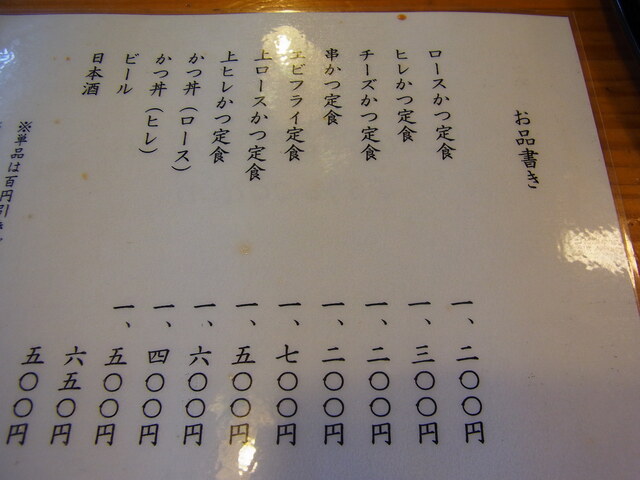 お品書き
ロースかつ定食 一、二〇〇円
ヒレかつ定食 一、三〇〇円
チーズかつ定食 一、二〇〇円
串かつ定食 一、二〇〇円
エビフライ定食 一、七〇〇円
上ロースかつ定食 一、五〇〇円
上ヒレかつ定食 一、六〇〇円
かつ丼（ロース） 一、四〇〇円
かつ丼（ヒレ） 一、五〇〇円
ビール 六五〇円
日本酒 五〇〇円
※単品は百円引き